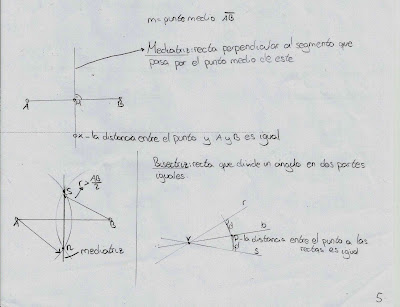 m = punto medio AB
Mediatriz: recta perpendicular al segmento que
pasa por el punto medio de este.
A
M
B
x - la distancia entre el punto y A y B es igual
Bisectriz: recta que divide un angulo en dos partes
iguales.
S
r > AB/2
A
B
mediatriz
r
d
b
p - la distancia entre el punto a las
rectas es igual
V
d
s
5